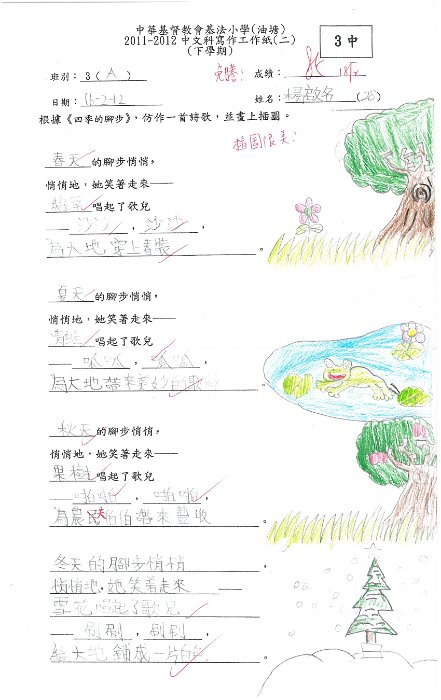 中華基督教會基法小學(油塘)
2011-2012中文科寫作工作紙(二)
(下學期)
3中
班別：3(A)
免騰！
成績：
日期：16-2-12
姓名：楊啟名 (28)
根據《四季的腳步》，仿作一首詩歌，並畫上插圖。
插圖很美！
春天的腳步悄悄，
悄悄地，她笑著走來——
綠葉唱起了歌兒
——沙沙，沙沙，
為大地穿上青裝。
夏天的腳步悄悄，
悄悄地，她笑著走來——
青蛙唱起了歌兒
——呱呱，呱呱，
為大地帶來美妙的歌聲。
秋天的腳步悄悄，
悄悄地，她笑著走來——
果樹唱起了歌兒
——啪啪，啪啪，
為農夫伯伯帶來豐收。
冬天的腳步悄悄，
悄悄地，她笑著走來——
雪花唱起了歌兒
——刷刷，刷刷，
給大地鋪成一片白色。